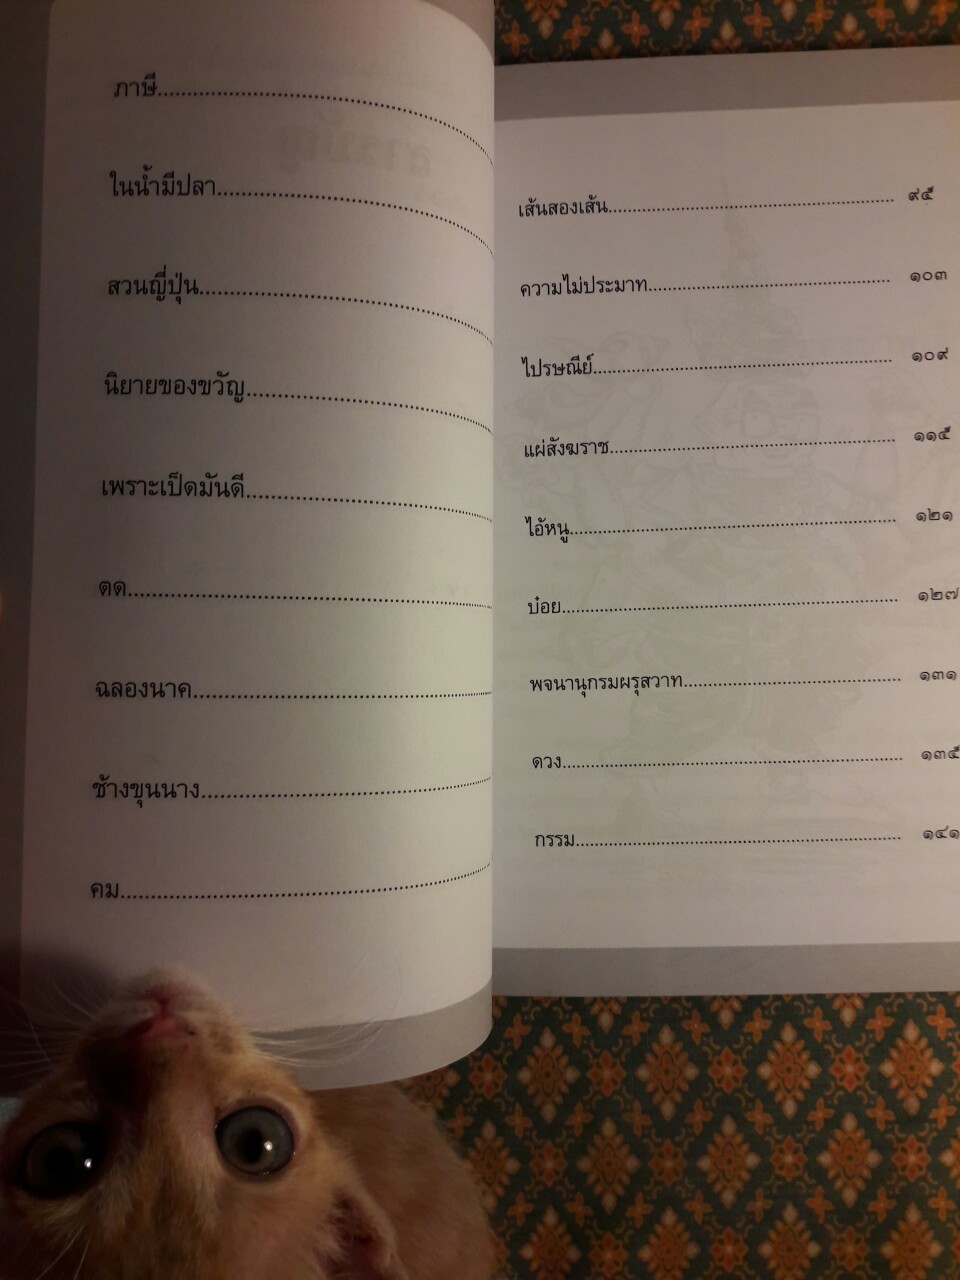 ภาษี
ในน้ำมีปลา
สวนญี่ปุ่น
นิยายของขวัญ
เพราะเป็ดมันดี
ตด
ฉลองนาค
ช้างขุนนาง
คม
เส้นสองเส้น ๙๕
ความไม่ประมาท ๑๐๓
ไปรษณีย์ ๑๐๙
แผ่สังฆราช ๑๑๕
ไอ้หนู ๑๒๑
บ๋อย ๑๒๗
พจนานุกรมผรุสวาท ๑๓๑
ดวง ๑๓๕
กรรม ๑๔๑